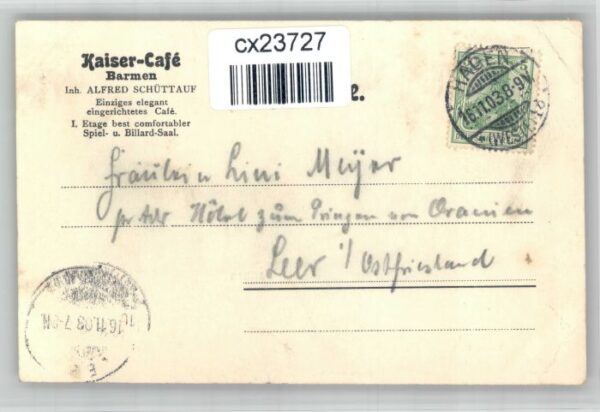 Kaiser-Café
Barmen
Inh. ALFRED SCHÜTTAUF
Einziges elegant
eingerichtetes Café.
I. Etage best comfortabler
Spiel- u. Billard-Saal.
cx23727
e.
HAGEN
16.11.03.8-9N
(WESTF.)
Fräulein Lini Meyer
pr Adr Hôtel zum Prinzen von Oranien
Leer i/Ostfriesland
16.11.03 7-8N